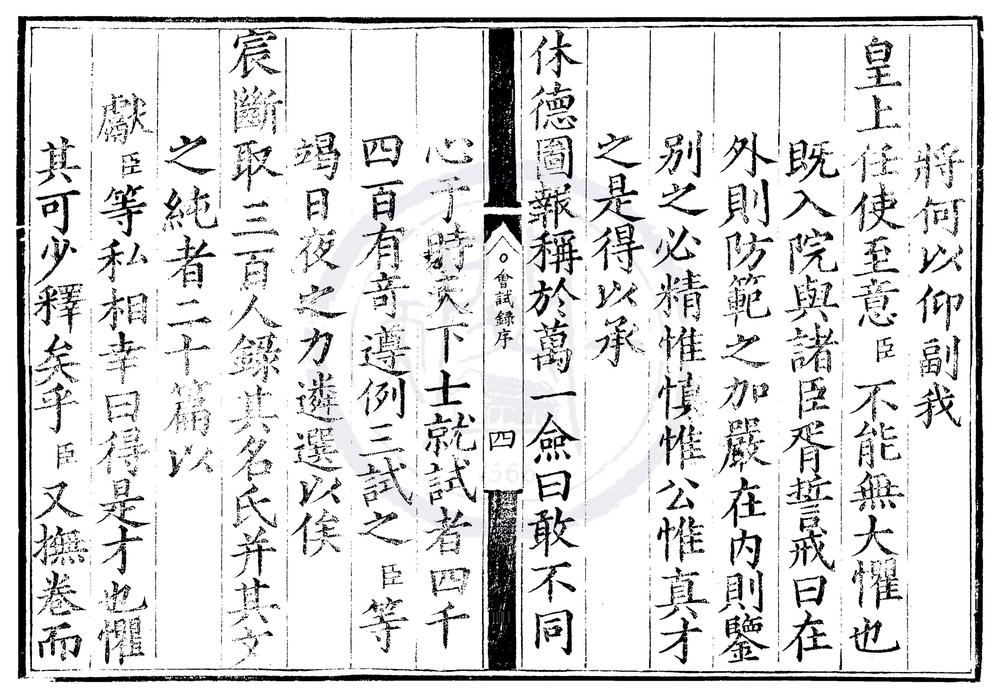 將何以仰副我
皇上任使至意臣不能無大懼也
既入院與諸臣胥誓戒曰在
外則防範之加嚴在內則鑒
別之必精惟慎惟公惟真才
之是得以承
休德圖報稱於萬一僉曰敢不同
會試錄序
四
心于時天下士就試者四千
四百有奇遵例三試之臣等
竭日夜之力遴選以俟
宸斷取三百人錄其名氏并其文
之純者二十篇以
獻臣等私相幸曰得是才也懼
其可少釋矣乎臣又撫卷而